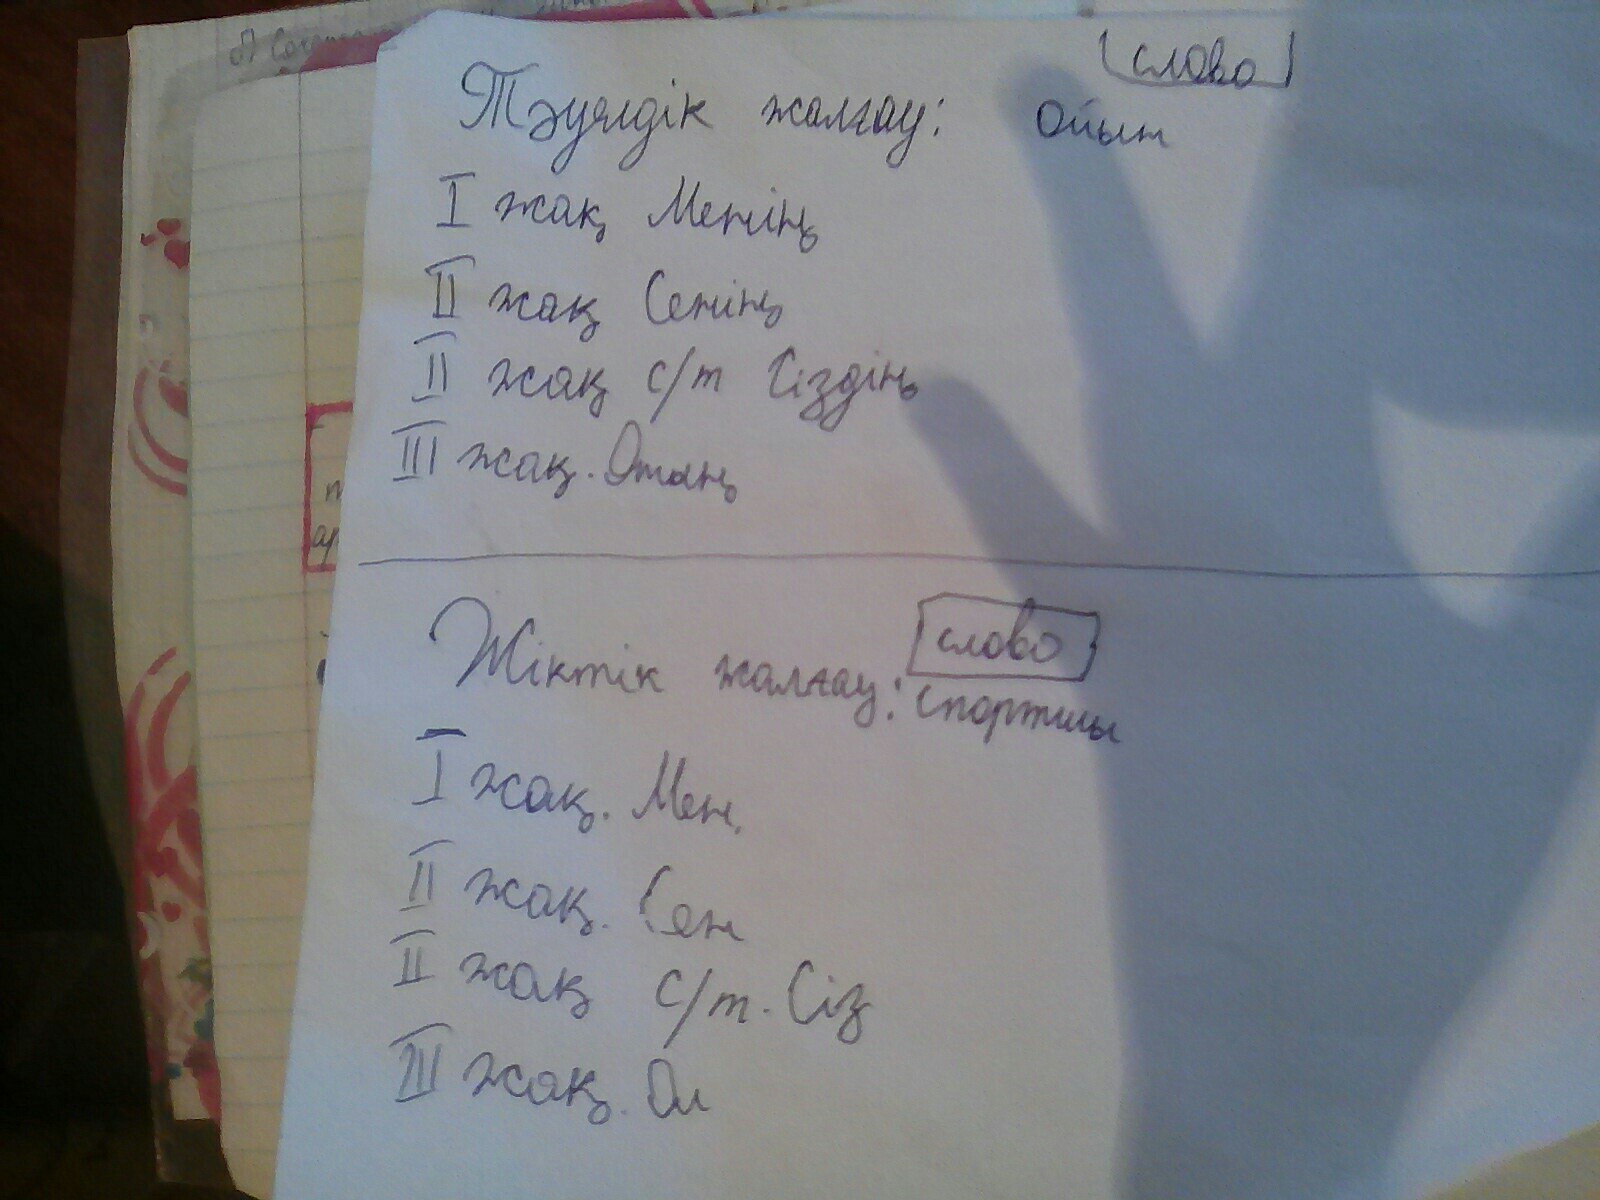 слово
Тәуелдік жалғау: ойын
I жақ Менің
II жақ Сенің
II жақ с/т Сіздің
III жақ. Отаң
слово
Жіктік жалғау: спортшы
I жақ. Мен.
II жақ. Сен
II жақ с/т. Сіз
III жақ. Ол